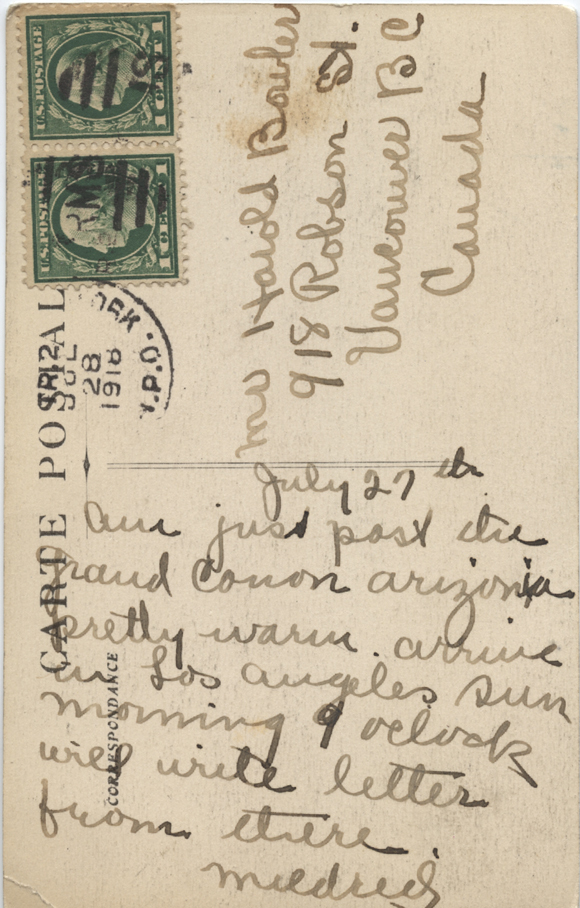 U.S. POSTAGE
1 CENT 1
U.S. POSTAGE
1 CENT 1
YORK
TR 12
JUL
28
1918
R.P.O.
RMS
CARTE POSTALE
CORRESPONDANCE
Mr Harold Bowler
918 Robson St.
Vancouver B C
Canada
July 27 th
Am just past the
grand Conon arizonia
pretty warm. arrive
in Los angeles Sun
morning 9 oclock
will write letter
from there.
Mildred